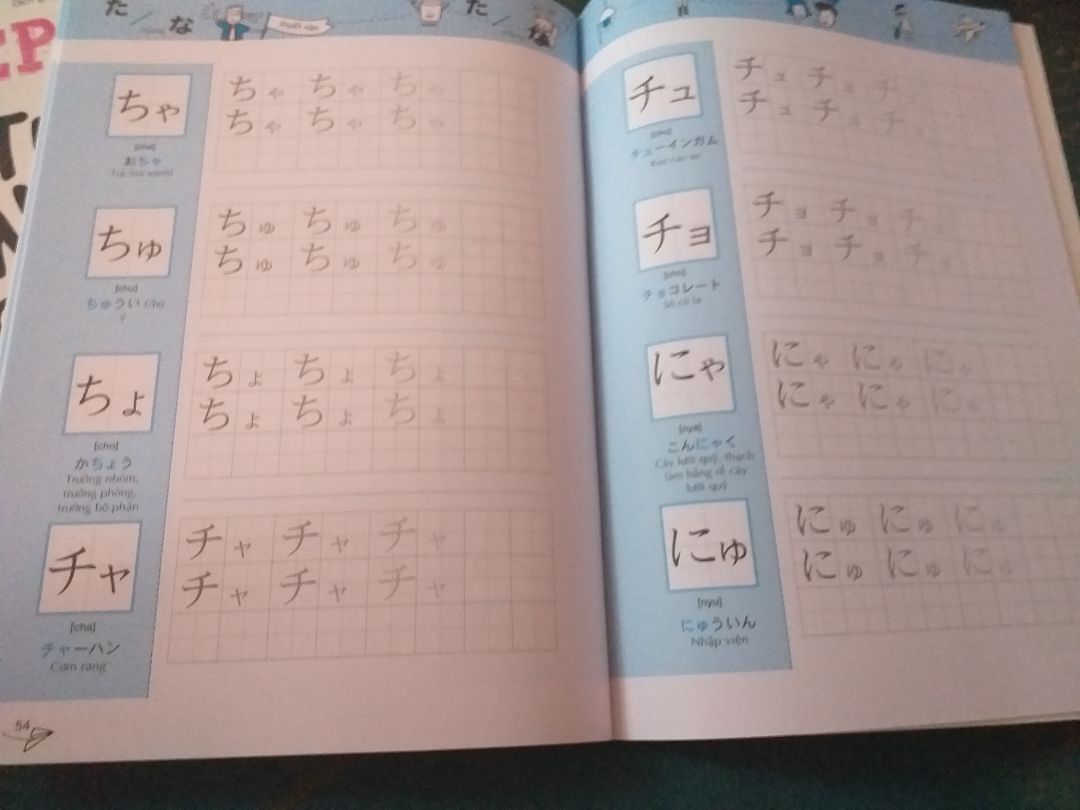 た
な
ちゃ
ちゃ ちゃ ちゃ
ちゃ ちゃ ちゃ
[cha]
おちゃ
ちゅ
ちゅ ちゅ ちゅ
ちゅ ちゅ ちゅ
[chu]
ちゅうい Chú
ý
ちょ
ちょ ちょ ちょ
ちょ ちょ ちょ
[cho]
かちょう
Trưởng nhóm,
trưởng phòng,
trưởng bộ phận
チャ
チャ チャ チャ
チャ チャ チャ
[cha]
チャーハン
Cơm rang
54
た
な
チュ
チュ チュ チ
チュ チュ チ
[chu]
チューインガム
Kẹo cao su
チョ
チョ チョ チョ
チョ チョ チョ
[cho]
チョコレート
Sô cô la
にゃ
にゃ にゃ にゃ
にゃ にゃ にゃ
[nya]
こんにゃく
Cây lưỡi quỷ, thạch
làm bằng rễ cây
lưỡi quỷ
にゅ
にゅ にゅ にゅ
にゅ にゅ にゅ
[nyu]
にゅういん
Nhập viện